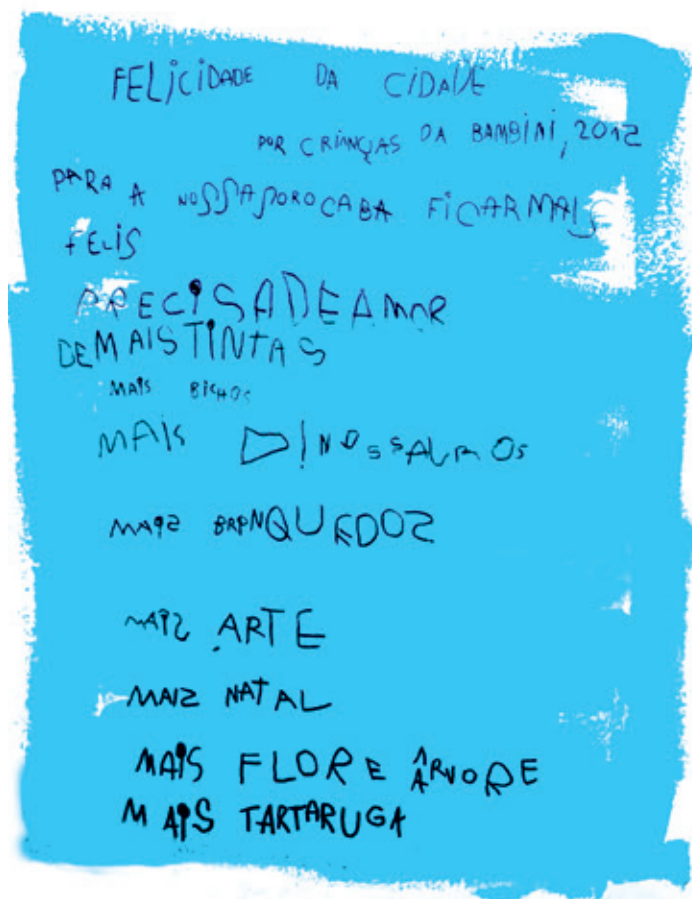 FELiCiDADE DA CiDADE
POR CRiANÇAS DA BAMBiNi, 2012
PARA A NOSSA SOROCABA FICAR MAIS
FELiS
PRECiSA DE AMOR
DE MAIS TiNTAS
MAiS BiCHOS
MAiS DINOSSAUROS
MAiS BRINQUEDOS
MAiS ARTE
MAIS NATAL
MAiS FLOR E ÁRVORE
MAiS TARTARUGA